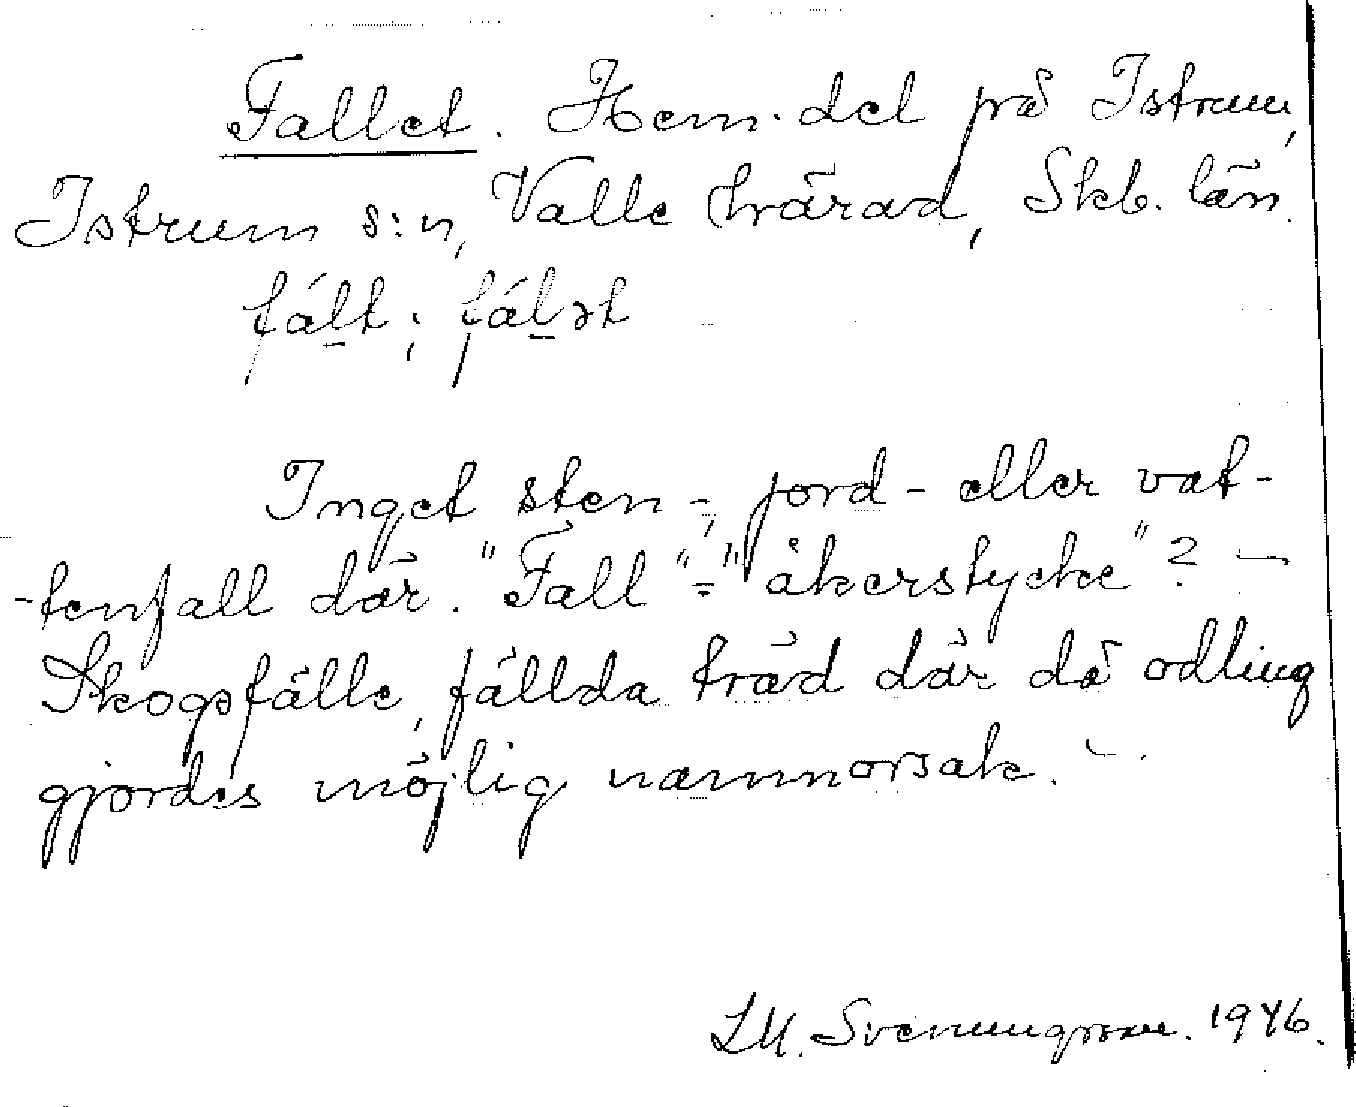 Fallet. Hem. del på Istrum,
Istrum s:n, Valle härad, Skb. län.
fál̲t; fál̲ət
Inget sten-, jord- eller vat-
-tenfall där. "Fall" = "åkerstycke"? —
Skogsfälle, fällda träd där då odling
gjordes möjlig namnorsak. –.
LM. Svenungsson. 1946.